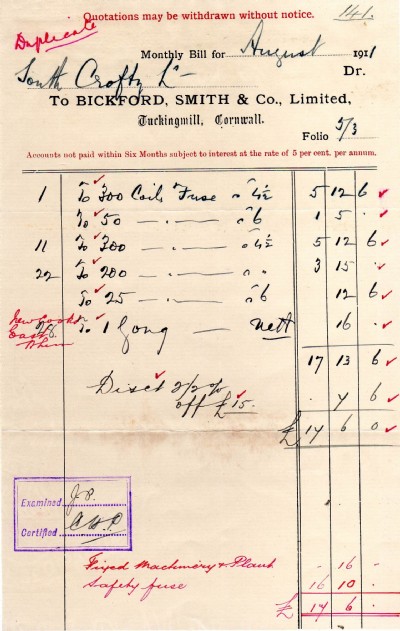 Quotations may be withdrawn without notice. 141.
Duplicate
Monthly Bill for August 1911
South Crofty Ld Dr.
To BICKFORD, SMITH & Co., Limited,
Tuckingmill, Cornwall.
Folio 5/3
Accounts not paid within Six Months subject to interest at the rate of 5 per cent. per annum.
1 To 300 Coils Fuse @ 4½ 5 12 6
To 50 — " — @ 6 1 5 .
11 To 300 — " — @ 4½ 5 12 6
22 To 200 — " — " " 3 15 .
To 25 — " — @ 6 12 6
28 To 1 Gong — nett 16 .
New Cooks
East
17 13 6
Disct 2/2 %
off £15. . 7 6
£ 17 6 0
Examined J.P.
Certified
Fixed Machinery & Plant - 16 -
Safety fuse 16 10 .
£ 17 6 .